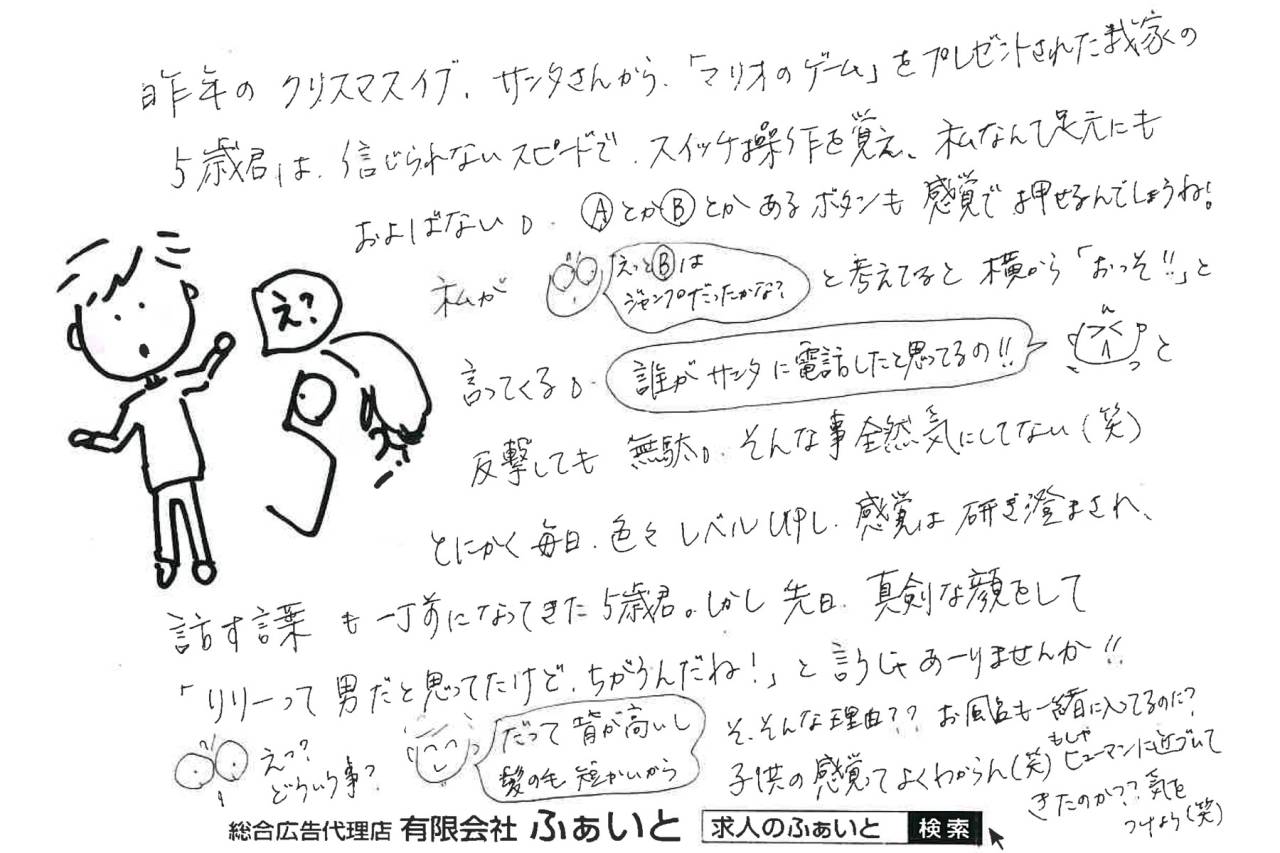 昨年の クリスマスイブ、サンタさんから、「マリオのゲーム」をプレゼントされた我家の
5歳君は、信じられないスピードで、スイッチ操作を覚え、私なんて足元にも
およばない。ⒶとかⒷとか あるボタンも 感覚で 押せるんでしょうね!
私が えっとⒷは
ジャンプだったかな? と考えてると 横から「おっそ!!」と
え?
言ってくる。誰が サンタに電話したと思ってるの!! と
反撃しても 無駄。そんな事全然気にしてない(笑)
とにかく 毎日、色々 レベルUPし、感覚は 研ぎ澄まされ、
話す言葉 も一丁前になってきた5歳君。しかし 先日、真剣な顔をして
「リリーって 男だと思ってたけど、ちがうんだね!」と 言うじゃ あーりませんか!!
えっ?
どういう事?
だって 背が高いし
髪の毛 短かいから
そ、そんな理由?? お風呂も一緒に入ってるのに?
子供の感覚って よくわからん(笑) もしや ヒューマンに近づいて
きたのか?? 気を
つけよう(笑)
総合広告代理店 有限会社 ふぁいと 求人のふぁいと 検索